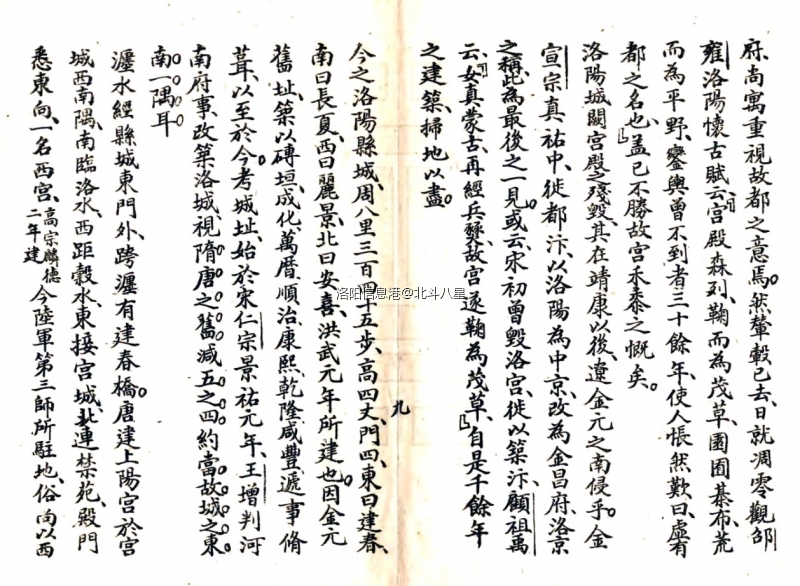 府、尚寓重視故都之意焉。然輦轂已去、日就凋零、觀邵
雍洛陽懷古賦云「宮殿森列、鞠而為茂草、園囿棊布、荒
而為平野、鑾輿曾不到者三十餘年、使人悵然歎曰、虛有
都之名也」、蓋已不勝故宮禾黍之慨矣。
洛陽城闕宮殿之殘毀、其在靖康以後、遼金元之南侵乎。金
宣宗真祐中、徙都汴、以洛陽為中京、改為金昌府、洛京
之稱、此為最後之一見。或云、宋初曾毀洛宮、徙以築汴、顧祖禹
云、「女真蒙古、再經兵燹、故宮遂鞠為茂草」、自是千餘年
之建築、掃地以盡。
九
今之洛陽縣城、周八里三百四十五步、高四丈、門四、東曰建春、
南曰長夏、西曰麗景、北曰安喜、洪武元年所建也。因金元
舊址、築以磚垣、成化萬曆順治康熙乾隆咸豐、遞事脩
葺、以至於今。考城址、始於宋仁宗景祐元年、王增判河
南府事、改築洛城、視隋唐之舊減五之四、約當故城之東
南一隅耳。
瀍水經縣城東門外、跨瀍有建春橋。唐建上陽宮於宮
城西南隅、南臨洛水、西距穀水、東接宮城、北連禁苑、殿門
悉東向、一名西宮、高宗麟德二年建 今陸軍第三師所駐地、俗尚以西
洛阳信息港@北斗八星